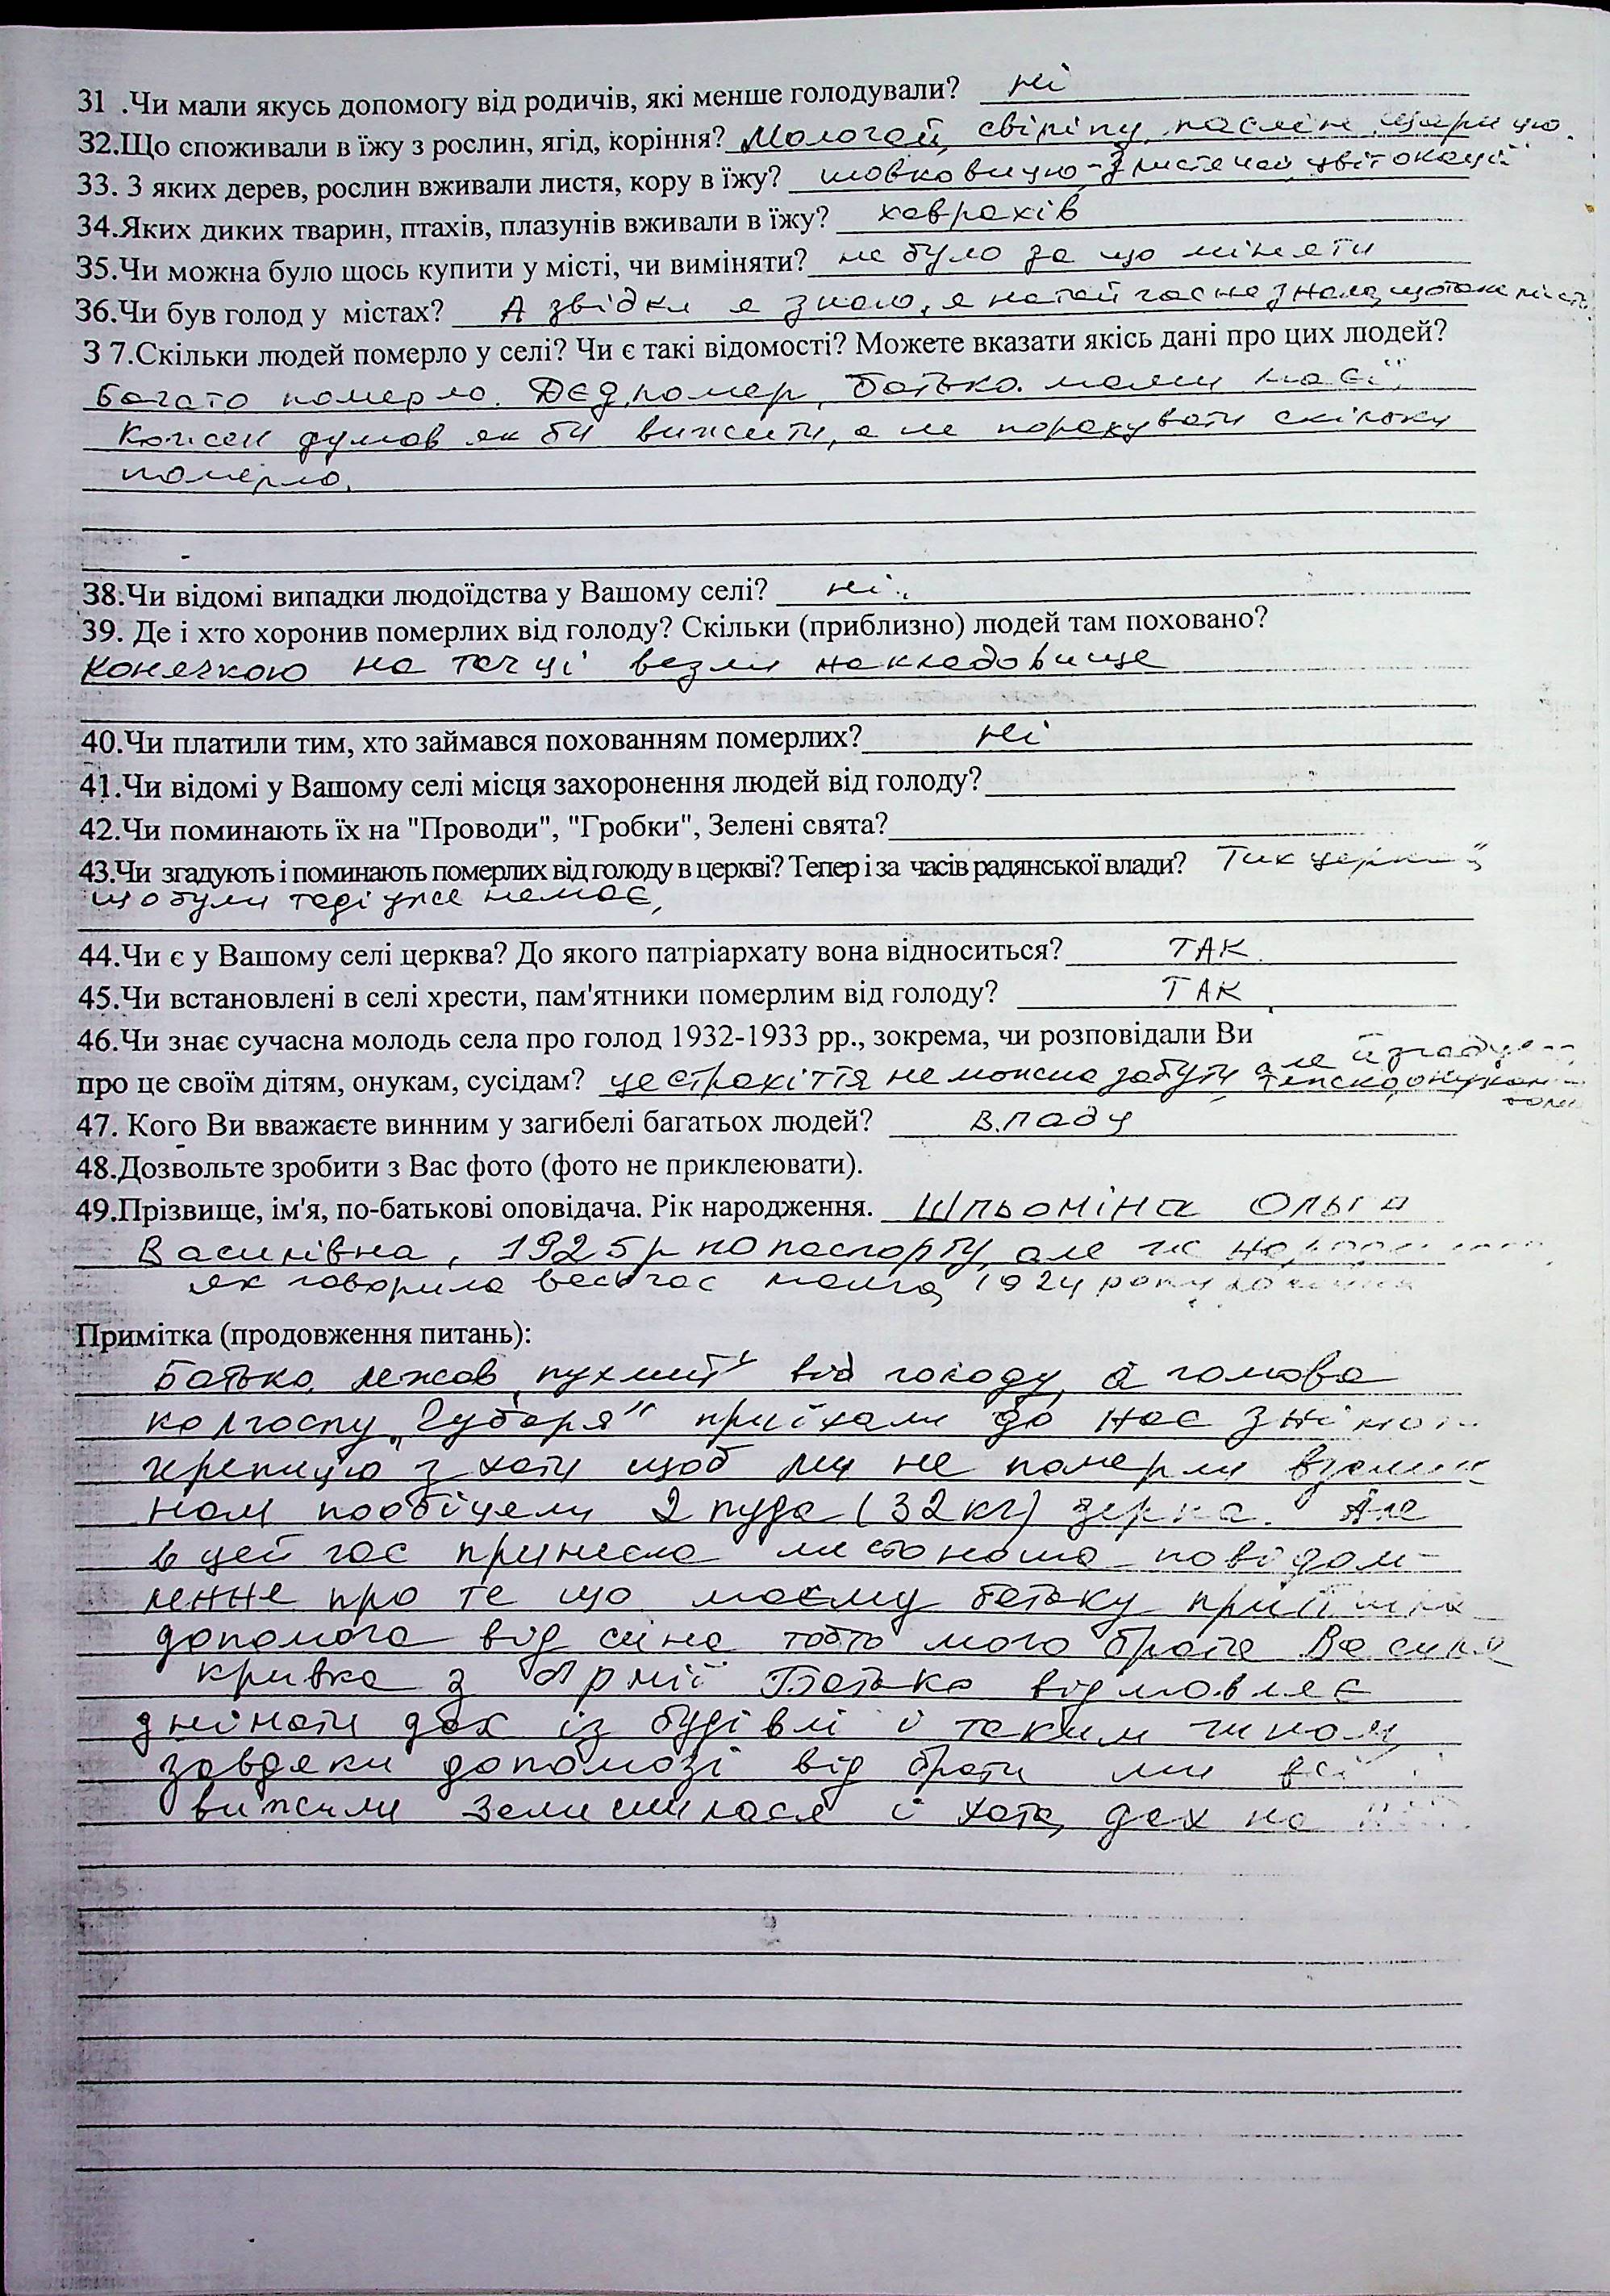 31 .Чи мали якусь допомогу від родичів, які менше голодували? ні
32.Що споживали в їжу з рослин, ягід, коріння? Молочай, свіріпу, паслін, щирицю.
33. З яких дерев, рослин вживали листя, кору в їжу? шовковицю - з листя чай, цвіт акації
34.Яких диких тварин, птахів, плазунів вживали в їжу? ховрахів
35.Чи можна було щось купити у місті, чи виміняти? не було за що міняти
36.Чи був голод у містах? А звідки я знаю, я на той час не знала, що таке місто
3 7.Скільки людей померло у селі? Чи є такі відомості? Можете вказати якісь дані про цих людей?
Багато померло. Дєд помер, батько мами моєї,
Кожен думав як би вижити, а не порахувати скільки
померло.
38.Чи відомі випадки людоїдства у Вашому селі? ні.
39. Де і хто хоронив померлих від голоду? Скільки (приблизно) людей там поховано?
Конячкою на тачці везли на кладовище
40.Чи платили тим, хто займався похованням померлих? ні
41.Чи відомі у Вашому селі місця захоронення людей від голоду?
42.Чи поминають їх на "Проводи", "Гробки", Зелені свята?
43.Чи згадують і поминають померлих від голоду в церкві? Тепер і за часів радянської влади? Тих церквей,
що були тоді уже немає,
44.Чи є у Вашому селі церква? До якого патріархату вона відноситься? ТАК
45.Чи встановлені в селі хрести, пам'ятники померлим від голоду? ТАК
46.Чи знає сучасна молодь села про голод 1932-1933 рр., зокрема, чи розповідали Ви
про це своїм дітям, онукам, сусідам? це страхіття не можна забути але й
47. Кого Ви вважаєте винним у загибелі багатьох людей? владу
48.Дозвольте зробити з Вас фото (фото не приклеювати).
49.Прізвище, ім'я, по-батькові оповідача. Рік народження. Шльоміна Ольга
Василівна, 1925 р по паспорту, але
як говорила весь час мама, 1924 року
Примітка (продовження питань):
Батько лежав пухлий від голоду, а голова
колгоспу "Губаря" приїхали до нас знімати
черепицю з хати щоб ми не померли взамін
нам пообіцяли 2 пуда (32 кг) зерна. Але
в цей час принесла листоноша повідом-
лення про те що моєму батьку прийшла
допомога від сина тобто мого брата Василя
кривка з Армії Батько відмовляє
знімати дах із будівлі і таким чином,
завдяки допомозі від брата ми всі
вижили залишилася і хата, дах на